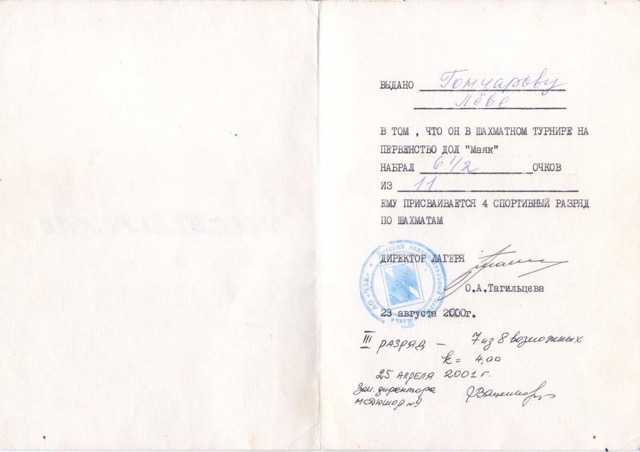 ВЫДАНО Гончарову
Лёве
В ТОМ , ЧТО ОН В ШАХМАТНОМ ТУРНИРЕ НА
ПЕРВЕНСТВО ДОЛ "Маяк"
НАБРАЛ 6 1/2 ОЧКОВ
ИЗ 11
ЕМУ ПРИСВАИВАЕТСЯ 4 СПОРТИВНЫЙ РАЗРЯД
ПО ШАХМАТАМ
ДИРЕКТОР ЛАГЕРЯ
О.А.Тагильцева
23 августа 2000г.
III РАЗРЯД – 7 из 8 возможных
k = 4,00
25 АПРЕЛЯ 2001 г.
Зам. директора